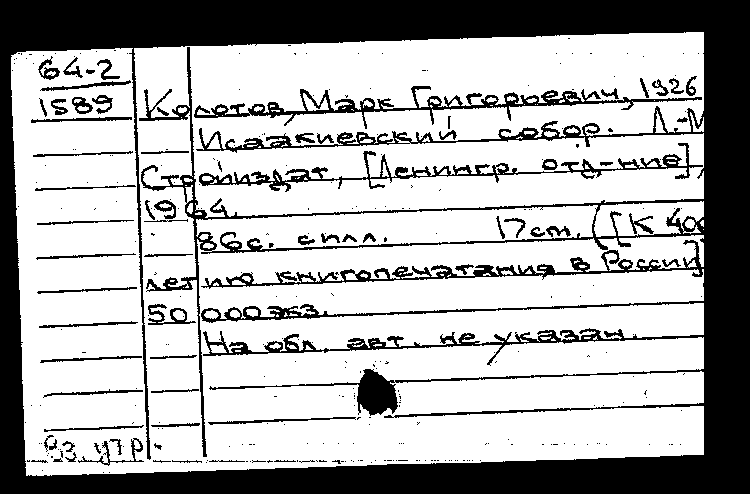 64-2
1589
Колотов, Марк Григорьевич, 1926
Исаакиевский собор. Л.-М
Стройиздат, [Ленингр. отд-ние],
1964.
86с. с илл. 17см. ([К 400
летию книгопечатания в России]
50 000 экз.
На обл. авт. не указан.
Вз. утр.